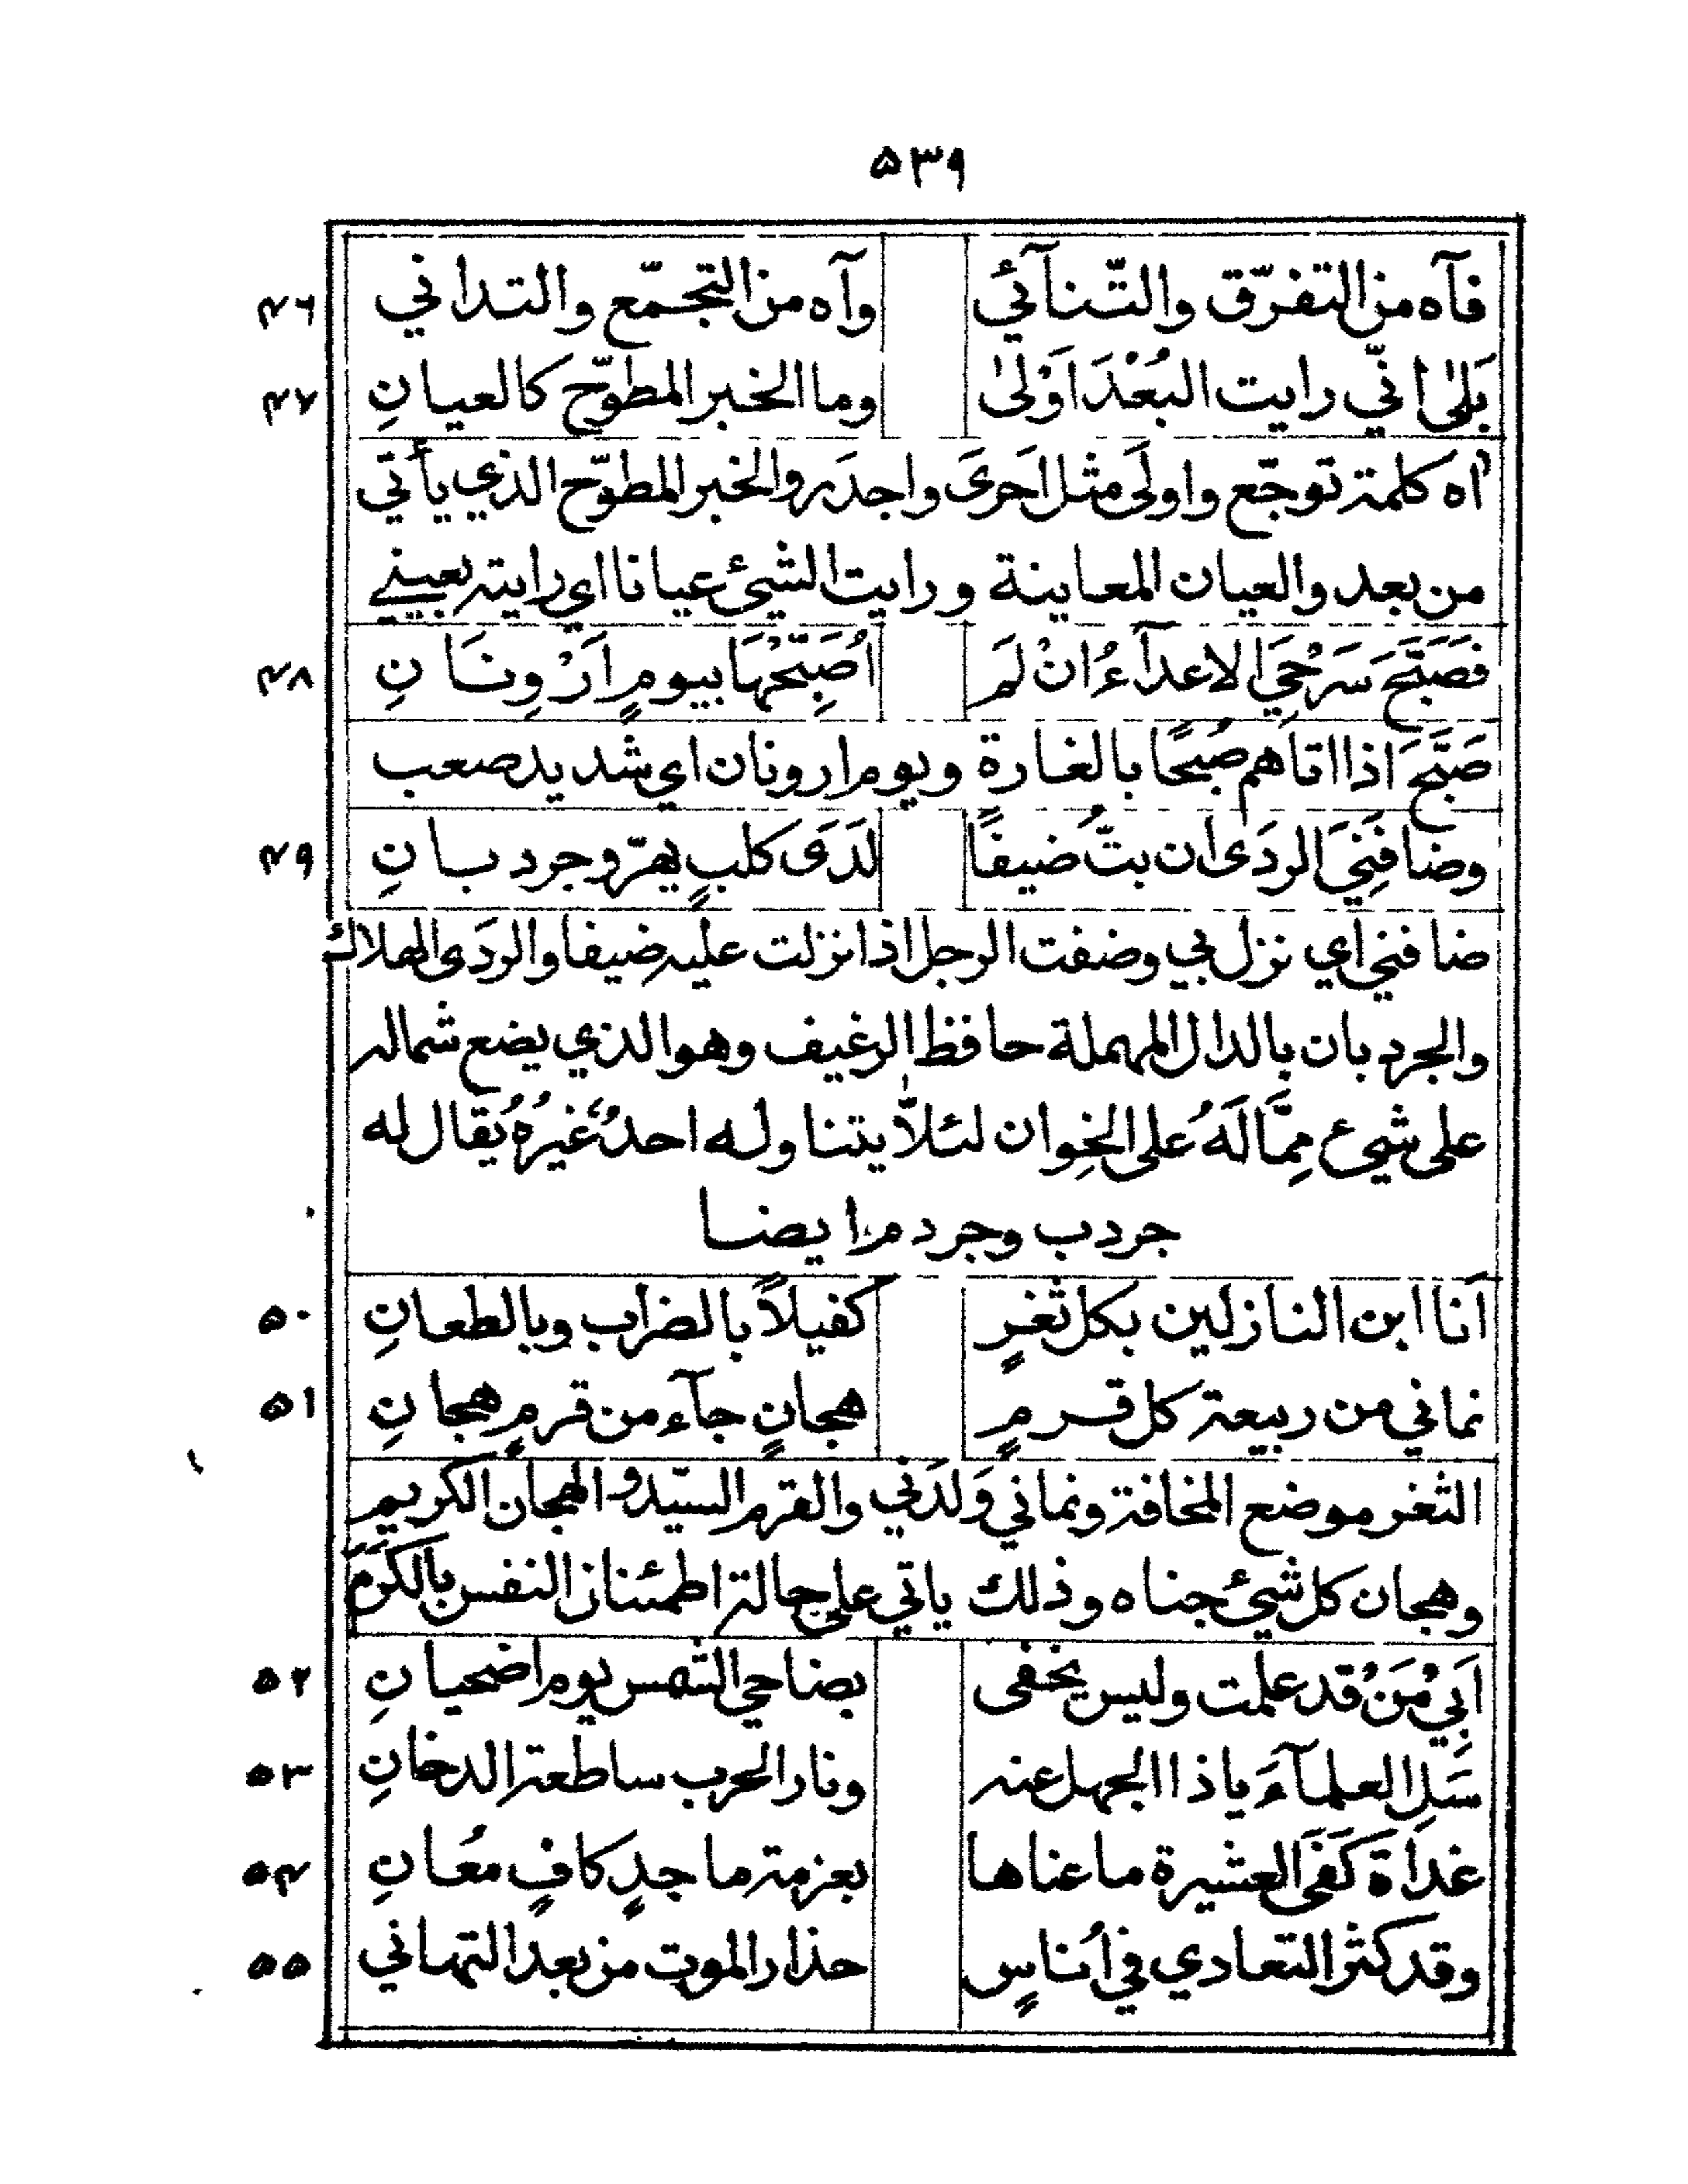 ٥٣٩
فآه من التفرّق والتّنآئي وآه من التجـمّع والتداني ٤٦
بَلىٰ انّي رايت البُعْدَ اَوْلىٰ وما الخبر المطوّح كالعيانِ ٤٧
اٰه كلمة توجّع واولَى مثل اَحرىَ واجدَر والخبر المطوّح الذي يأتي
من بعد والعيان المعاينة ورايت الشيئ عيانا اي رايته بعيني
فَصَبَّحَ سَرْحِيَ الاعدآءُ انْ لَم اُصَبِّحْهَا بيومٍ اَرْوِنَانِ ٤٨
صَبَّحَ اذا اتاهم صُبحًا بالغارة ويوم ارونان اي شديد صعب
وضافَنِيَ الردَى ان بتُّ ضيفًا لَدَى كلبٍ يهرّ وجردبانِ ٤٩
ضافني اي نزل بي وضفت الرجل اذا نزلت عليه ضيفا والردَى الهلاك
والجردبان بالدال المهملة حافظ الرغيف وهو الذي يضع شماله
على شيء مِمَّا لَهُ على الخِوان لئلاّ يتناوله احدٌ غيرُهُ يُقال له
جردب وجردم ايضا
اَنا ابن النازلين بكل ثغرٍ كفيلاً بالضراب وبالطعانِ ٥٠
نماني من ربيعة كل قرمٍ هجانٍ جآء من قرمٍ هجانِ ٥١
الثغر موضع المخافة ونماني وَلدَني والقرم السيّد والهجان الكريم
وهجان كل شيئ جناه وذلك ياتي على حالة اطمئنان النفس بالكَرَم
اَبِيْ مَنْ قد علمت وليس يخفى بضاحي الشمس يوم اضحيانِ ٥٢
سَلِ العلمآءَ يا ذا الجهل عنه ونار الحرب ساطعة الدخانِ ٥٣
غداةَ كَفَى العشيرة ما عناها بعزمة ماجدٍ كافٍ مُعانِ ٥٤
وقد كثر التعادي في اُناسٍ حذار الموت من بعد التهاني ٥٥